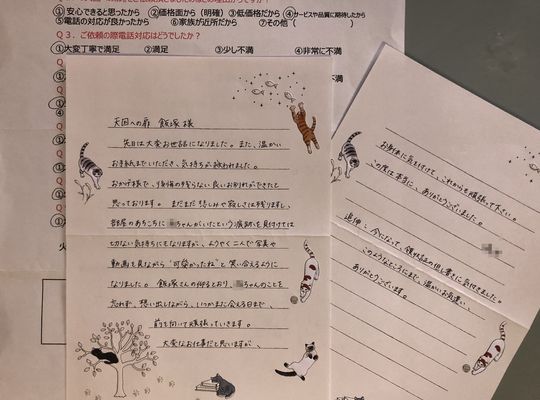 ①安心できると思ったから ②価格面から(明確) ③低価格だから ④サービスや品質に期待したから
⑤電話の対応が良かったから ⑥家族が近所だから ⑦その他( )
Q３．ご依頼の際電話対応はどうでしたか？
①大変丁寧で満足 ②満足 ③少し不満 ④非常に不満
天国への扉 飯塚様
先日は大変お世話になりました。また、温かい
お手紙までいただき、気持ちが救われました。
おかげ様で、後悔の残らない良いお別れができたと
思っております。まだまだ悲しみや寂しさは残りますし、
部屋のあちこちに ちゃんがいたという痕跡を見付けては
切ない気持ちにもなりますが、ようやく二人で写真や
動画を見ながら"可愛かったね"と笑い合えるように
なりました。飯塚さんの仰るとおり、 ちゃんのことを
忘れず、想い出しながら、いつかまた会える日まで、
前を向いて頑張っていきます。
大変なお仕事だと思いますが、
お身体に気を付けて、これからも頑張って下さい。
この度は本当に、ありがとうございました。
追伸：今になって、領収証の但し書きに気付きました。
このようなところにまで、温かいお気遣い、
ありがとうございます。